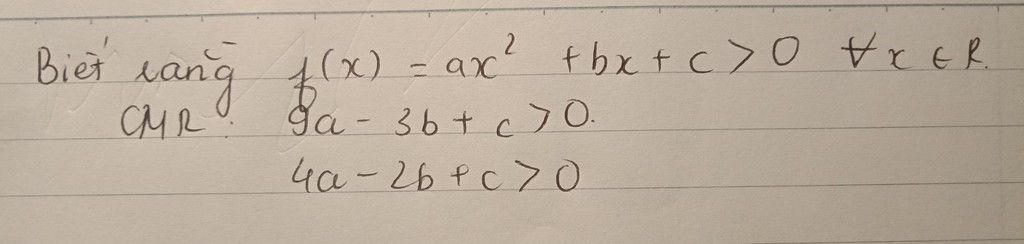 Biết rằng f(x) = ax² + bx + c > 0 ∀x ∈ R.
CMR: 9a - 3b + c > 0.
4a - 2b + c > 0